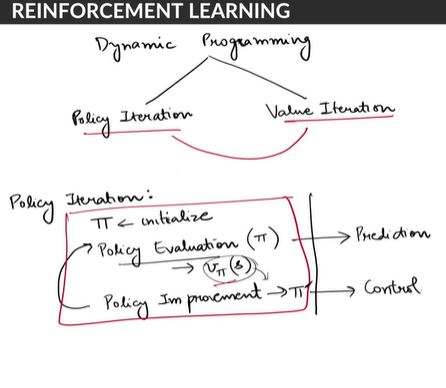 REINFORCEMENT LEARNING
Dynamic Programming
Policy Iteration Value Iteration
Policy Iteration:
π ← initialize
Policy Evaluation (π) → Prediction
→ vπ(s)
Policy Improvement → π' → Control